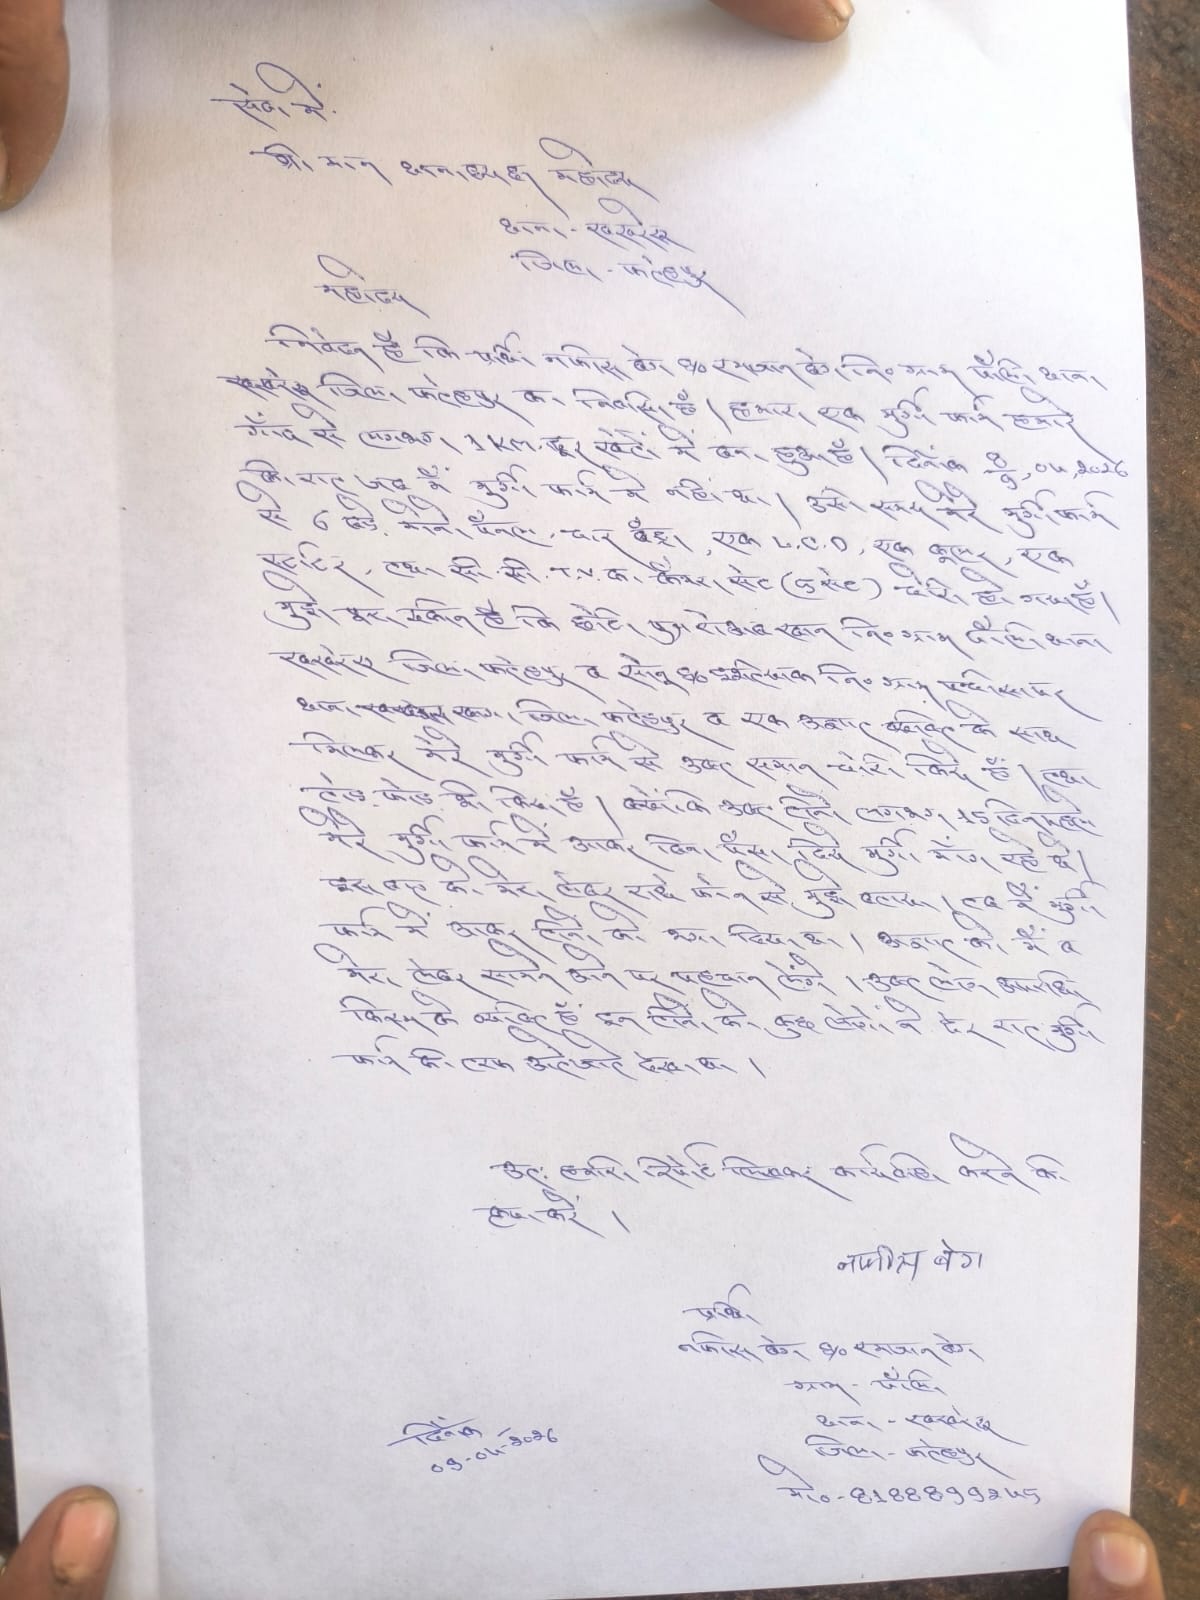 सेवा में.
श्री मान थानाध्यक्ष महोदय
थाना - खखरेरू
जिला - फतेहपुर
महोदय
निवेदन है कि प्रार्थी नफीस बेग S/o रमजान बेग नि० ग्राम पौली थाना
खखरेरू जिला फतेहपुर का निवासी हूँ। हमारा एक मुर्गी फार्म हमारे
गाँव से लगभग 1 KM. दूर खेतों में बना हुआ है। दिनाँक 8/9, 04, 2026
की रात जब मैं मुर्गी फार्म में नहीं था। उसी समय मेरे मुर्गी फार्म
से 6 बड़े पैनल, चार बैट्रा, एक L.C.D, एक कूलर, एक
स्टार्टर, तथा सी. सी. T.V. का कैमरा सेट (5 सेट) चोरी हो गया है।
मुझे पूरा यकीन है कि छोटी पुत्र खान नि० ग्राम पौली थाना
खखरेरू जिला फतेहपुर व सोनू S/o नि० ग्राम
थाना खागा जिला फतेहपुर व एक अज्ञात व्यक्ति के साथ
मिलकर मेरे मुर्गी फार्म से उक्त समान चोरी किये हैं। तथा
तोड़ फोड़ भी किया है। क्योंकि उक्त तीनों लगभग 15 दिन पहले
मेरे मुर्गी फार्म में आकर बिना पैसा दिये मुर्गी माँग रहे थे।
इस बात को मेरा लेबर फोन से मुझे बताया। तब मैं मुर्गी
फार्म में आकर तीनों को भगा दिया था। अज्ञात को मैं व
मेरा लेबर सामने आने पर पहचान लेंगे। उक्त लोग अपराधी
किस्म के व्यक्ति हैं इन तीनों को कुछ लोगों ने देर रात मुर्गी
फार्म की तरफ आते जाते देखा था।
अतः हमारी रिपोर्ट लिखकर कार्यवाही करने की
कृपा करें।
नफीस बेग
प्रार्थी
नफीस बेग S/o रमजान बेग
ग्राम - पौली
थाना - खखरेरू
जिला - फतेहपुर
मो० - 8188899245
दिनाँक
09-04-2026